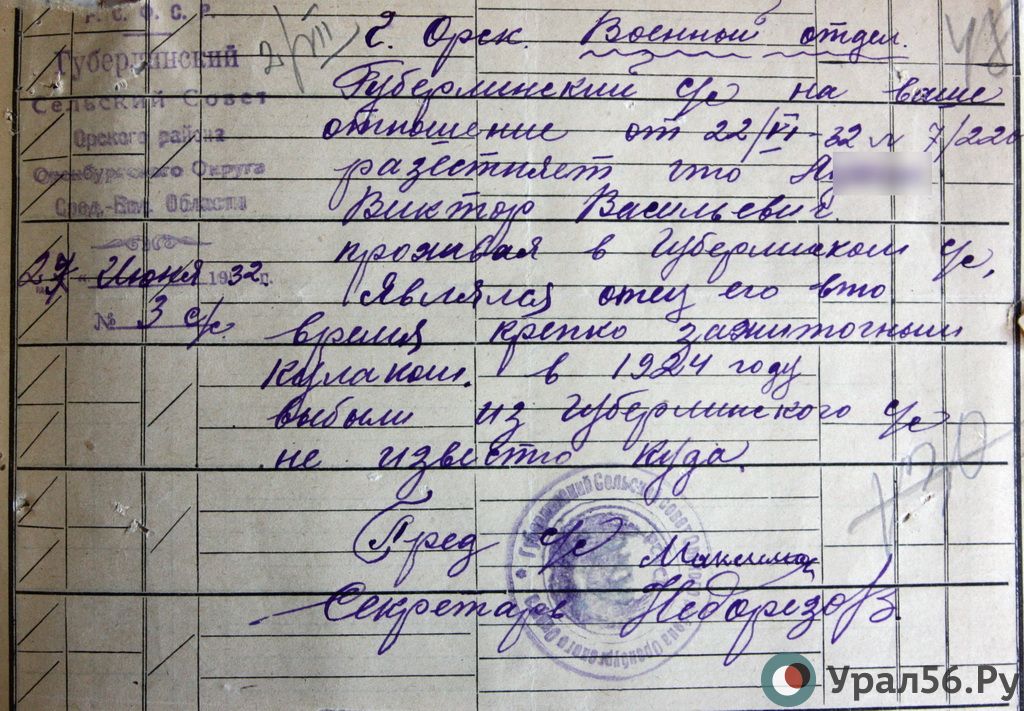 Р. С. Ф. С. Р.
Губерлинский
Сельский Совет
Орского района
Оренбургского Округа
Сред.-Вол. Области
27 Июня 1932 г.
№ 3 с/с.
2/VII
48
г. Орск. Военный отдел.
Губерлинский с/с на ваше
отношение от 22/VI-32 № 7/226
разестняет что
Виктор Васильевич.
проживая в Губерлинском с/с,
Являлся отец его вто
время крепко зажиточным
Кулаком. в 1924 году
выбыли из Губерлинского с/с
не известо куда.
Пред с/с Максимов
Секретарь Недорезов
Губерлинский Сельский Совет
Урал56.Ру